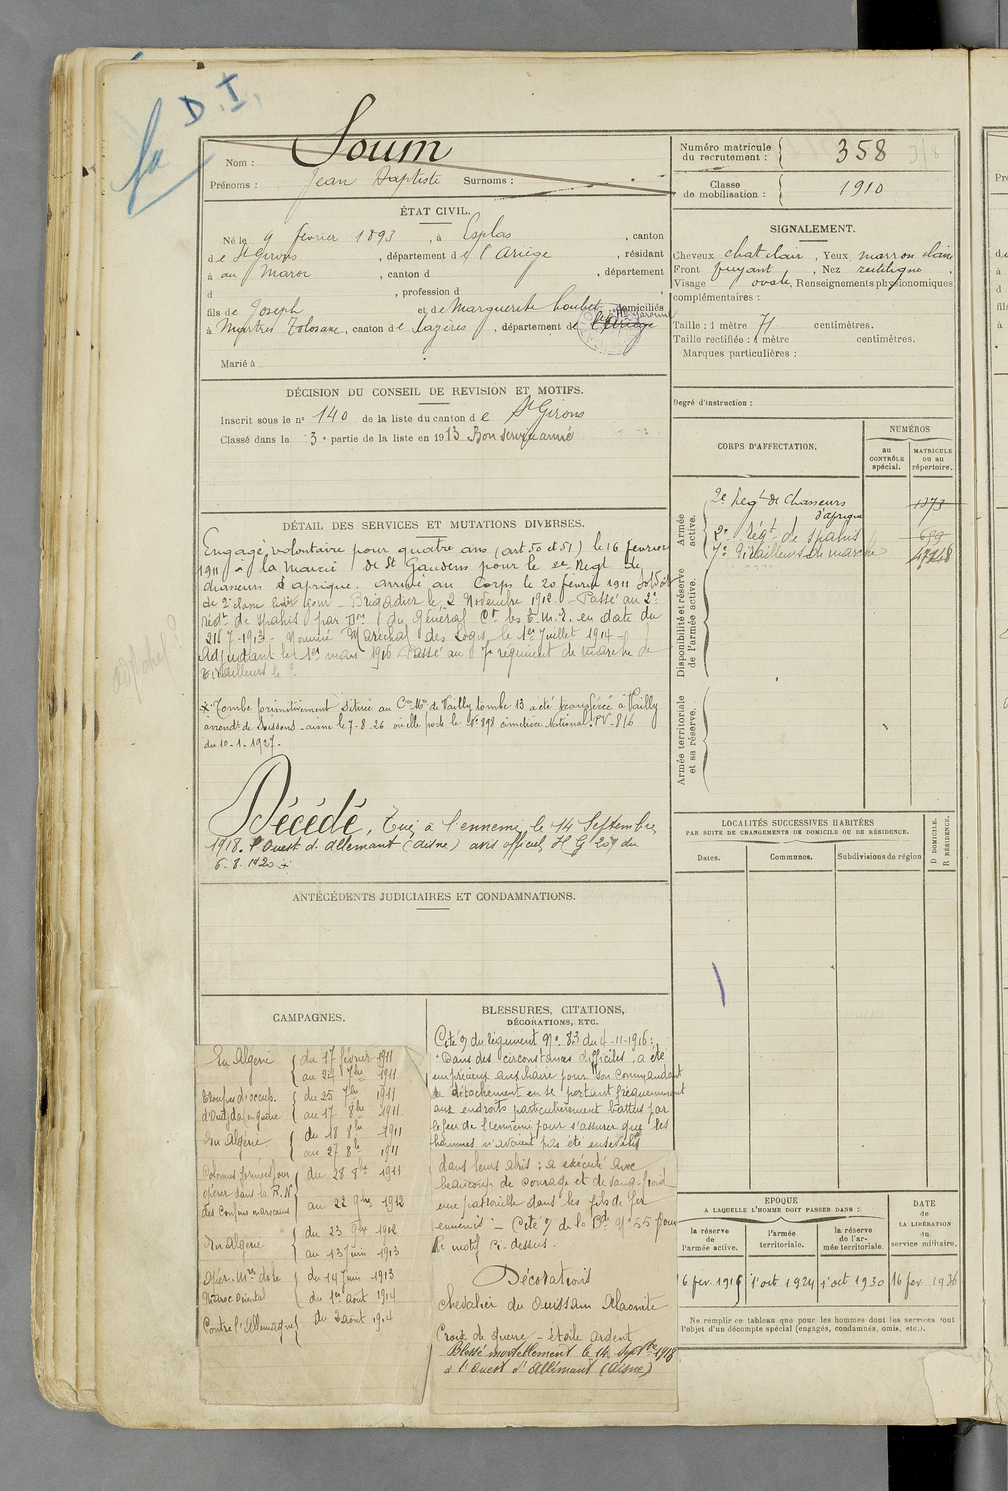 D.I.
Nom : Soum
Prénoms : Jean Baptiste Surnoms :
Numéro matricule du recrutement : 358
Classe de mobilisation : 1910
ÉTAT CIVIL.
Né le 9 février 1893, à Esplas, canton
de St Girons, département de l'Ariège, résidant
à au Maroc, canton d , département
d , profession d
fils de Joseph et de Marguerite Loubet domiciliés
à Martres Tolosane, canton de Cazères, département de Hte Garonne
Marié à
SIGNALEMENT.
Cheveux chat clair, Yeux marron clair
Front fuyant, Nez rectiligne,
Visage ovale, Renseignements physionomiques
complémentaires :
Taille : 1 mètre 71 centimètres.
Taille rectifiée : 1 mètre centimètres.
Marques particulières :
Degré d'instruction :
DÉCISION DU CONSEIL DE REVISION ET MOTIFS.
Inscrit sous le no 140 de la liste du canton de St Girons
Classé dans la 3e partie de la liste en 1913 Bon service armé
CORPS D'AFFECTATION.
NUMÉROS
au CONTRÔLE spécial.
MATRICULE ou au répertoire.
Armée active.
2e Regt de Chasseurs d'afrique 1373
2e Régt de spahis 699
7e Tirailleurs de marche
Disponibilité et réserve de l'armée active.
Armée territoriale et sa réserve.
DÉTAIL DES SERVICES ET MUTATIONS DIVERSES.
Engagé volontaire pour quatre ans (art. 50 et 51) le 16 février
1911 à la Mairie de St Gaudens pour le 2e Regt de
chasseurs d'afrique. arrivé au Corps le 20 février 1911
de 2e classe ledit jour - Brigadier le 2 Novembre 1912 - Passé au 2e
régt de spahis par Don du Général Ct les T.M.O. en date du
21-7-1913 - Nommé Maréchal des Logis le 1er Juillet 1914 -
Adjudant le 1er mars 1916 Passé au 7e régiment de marche de
Tirailleurs le ?
Tombe primitivement située au Cre Mre de Vailly tombe 13 a été transférée à Vailly
arrondt de Soissons - aisne le 7-8-26 où elle porte le No 898 cimetière National. PV - 816
du 10-1-1927.
Décédé, Tué à l'ennemi le 14 Septembre
1918. l'Ouest d'Allemant (Aisne) avis officiel H G 207 du
6.8.1920
ANTÉCÉDENTS JUDICIAIRES ET CONDAMNATIONS.
LOCALITÉS SUCCESSIVES HABITÉES
PAR SUITE DE CHANGEMENTS DE DOMICILE OU DE RÉSIDENCE.
Dates. Communes. Subdivisions de région
D DOMICILE. R RÉSIDENCE.
CAMPAGNES.
En Algérie du 17 février 1911
au 24 7bre 1911
Troupes d'occup. du 25 7bre 1911
d'Oudjda en guerre au 17 8bre 1911.
En Algérie du 18 8bre 1911
au 27 8bre 1911
Colonnes formées pour du 28 8bre 1911
opérer dans la R. N
des Confins marocains au 22 9bre 1912
En Algérie du 23 9bre 1912
au 13 juin 1913
Opér. Mres ds le du 14 juin 1913
Maroc oriental du 1er août 1914
Contre l'Allemagne du 2 août 1914
BLESSURES, CITATIONS,
DÉCORATIONS, ETC.
Cité O/ du régiment No 83 du 4-11-1916 :
"Dans des circonstances difficiles, a été
un précieux auxiliaire pour son Commandant
de détachement en se portant fréquemment
aux endroits particulièrement battus par
le feu de l'ennemi pour s'assurer que les
hommes n'avaient pas été ensevelis
dans leurs abris : a exécuté avec
beaucoup de courage et de sang-froid
une patrouille dans les fils de fer
ennemis" - Cité O/ de la Bde No 55 pour
le motif ci-dessus.
Décorations
Chevalier du Ouissam Alaouite
Croix de Guerre - étoile argent
Blessé mortellement le 14 Septbre 1918
à l'Ouest d'Allemant (Aisne)
EPOQUE
A LAQUELLE L'HOMME DOIT PASSER DANS :
la réserve de l'armée active.
l'armée territoriale.
la réserve de l'armée territoriale.
DATE de LA LIBÉRATION du service militaire.
16 fev. 1915 1 oct 1924 1 oct 1930 16 fev 1936
Ne remplir ce tableau que pour les hommes dont les services font
l'objet d'un décompte spécial (engagés, condamnés, omis, etc.).